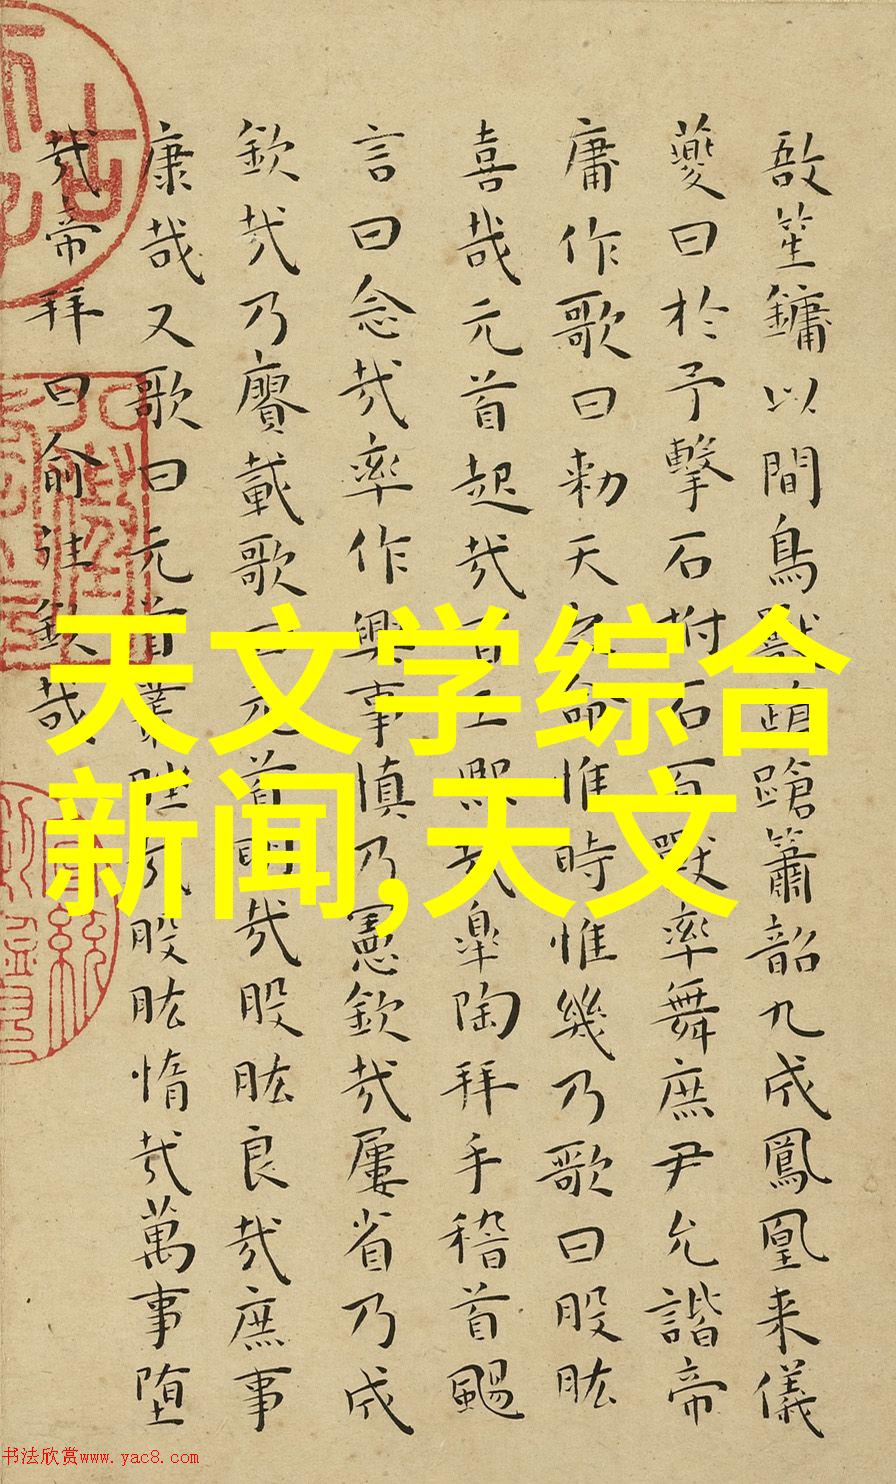 敔笙鏞以間鳥獸蹌蹌簫韶九成鳳凰来儀
夔曰於予擊石拊石百獸率舞庶尹允諧帝
庸作歌曰勅天之命惟時惟幾乃歌曰股肱
喜哉元首起哉百工熙哉臯陶拜手稽首颺
言曰念哉率作興事慎乃憲欽哉屢省乃成
欽哉乃賡載歌曰元首明哉股肱良哉庶事
康哉又歌曰元首叢脞哉股肱惰哉萬事堕
哉帝拜曰俞往欽哉
天文学综合
新闻,天文
书法欣赏www.yac8.com